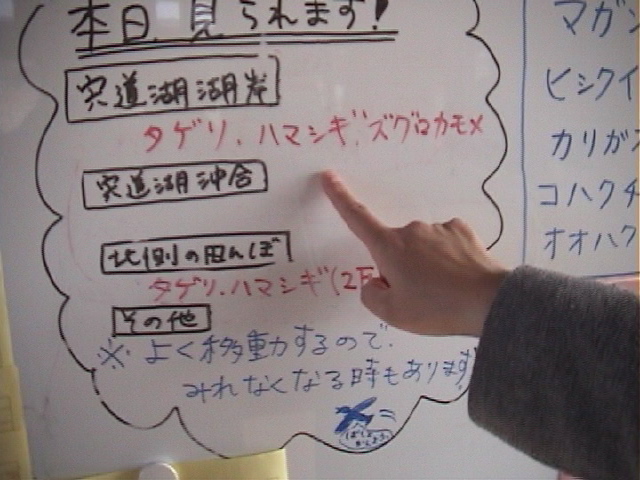 本日、見られます!
宍道湖湖岸
タゲリ、ハマシギ、ズグロカモメ
宍道湖沖合
北側の田んぼ
タゲリ、ハマシギ(2
その他
※よく移動するので、
みれなくなる時もあります
マガン
ヒシクイ
カリガ
コハクチ
オオハク